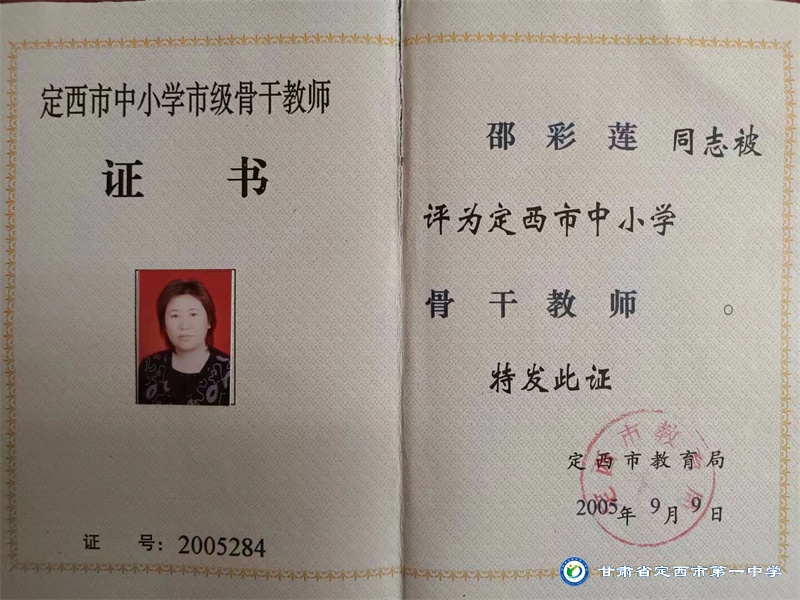 定西市中小学市级骨干教师
证 书
证 号：2005284
邵 彩 莲 同志被
评为定西市中小学
骨 干 教 师 。
特发此证
定西市教育局
2005年 9月 9日
定西市教育局
甘肃省定西市第一中学